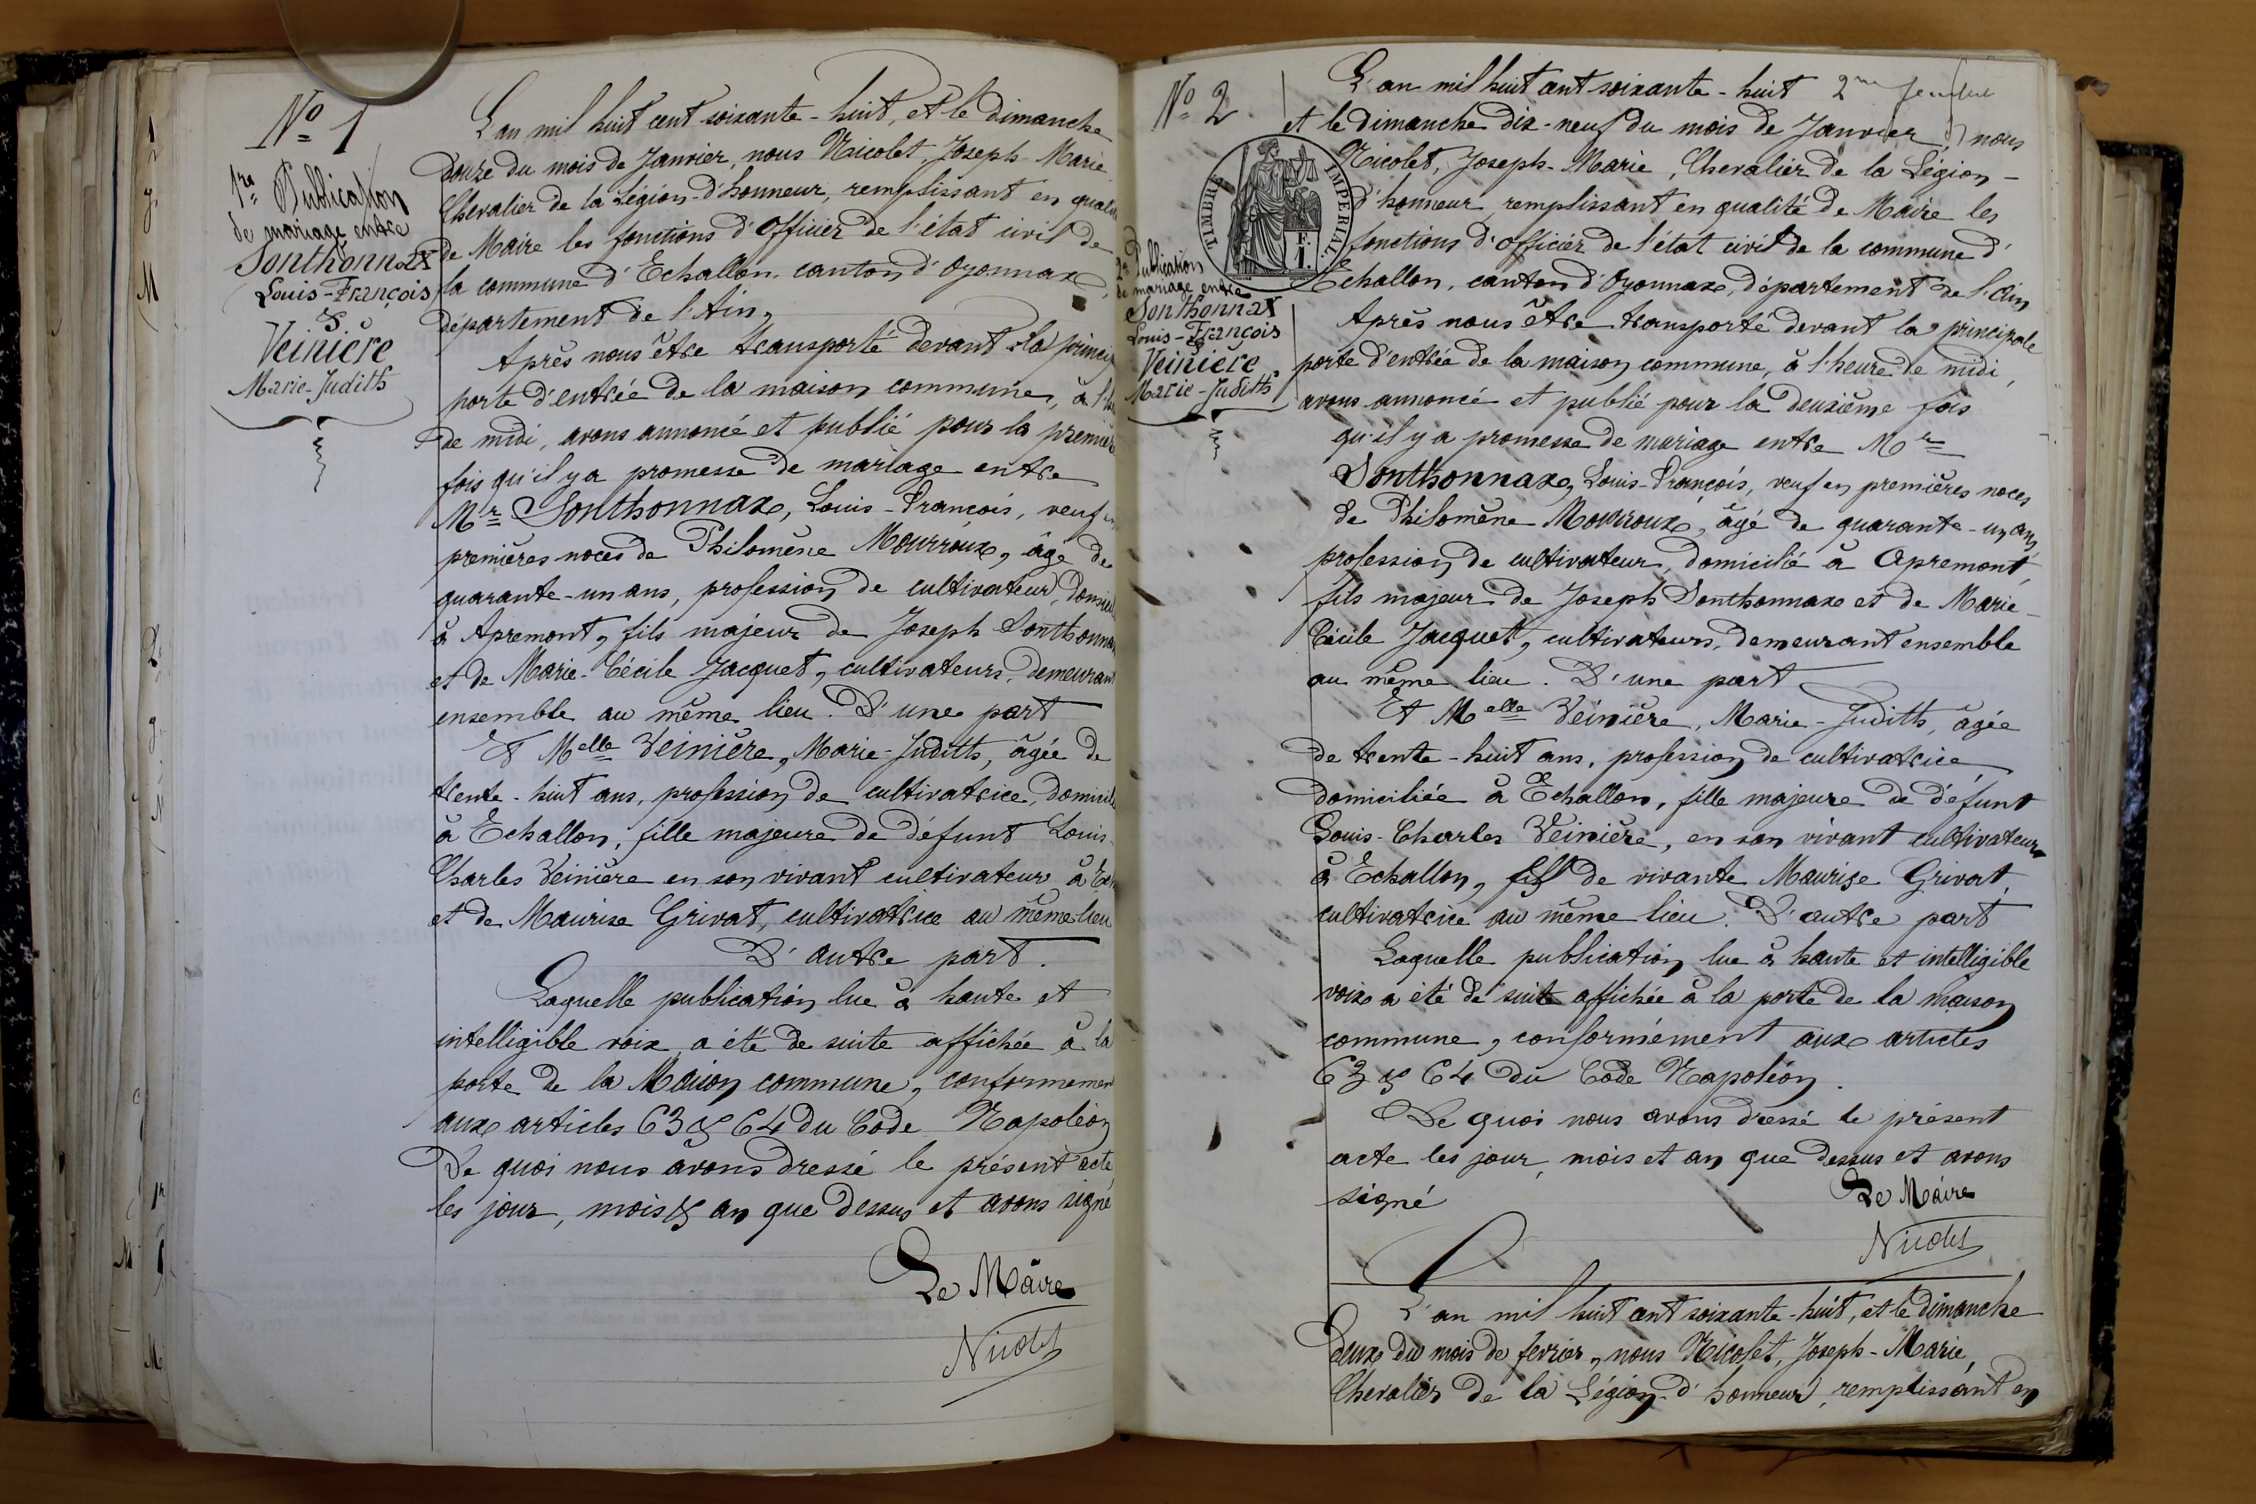 No 1
1re Publication
de mariage entre
Sonthonnax
Louis-François
&
Veinière
Marie-Judith
L'an mil huit cent soixante-huit, et le dimanche
douze du mois de Janvier, nous Nicolet, Joseph-Marie
Chevalier de la Légion-d'honneur, remplissant en qualité
de Maire les fonctions d'Officier de l'état civil de
la commune d'Echallon, canton d'Oyonnax,
département de l'Ain,
Après nous être transporté devant la princip
porte d'entrée de la maison commune, à l'he
de midi, avons annoncé et publié pour la première
fois qu'il y a promesse de mariage entre
Mr Sonthonnax, Louis-François, veuf en
premières noces de Philomène Mourroux, âgé de
quarante-un ans, profession de cultivateur, domicil
à Apremont, fils majeur de Joseph Sonthonnax
et de Marie-Cécile Jacquet, cultivateurs, demeurant
ensemble au même lieu. D'une part
Et Melle Veinière, Marie-Judith, âgée de
trente-huit ans, profession de cultivatrice, domicil
à Echallon, fille majeure de défunt Louis-
Charles Veinière en son vivant cultivateur à Ech
et de Maurise Grivat, cultivatrice au même lieu
D'autre part.
Laquelle publication lue à haute et
intelligible voix a été de suite affichée à la
porte de la Maison commune, conformémen
aux articles 63 & 64 du Code Napoléon
De quoi nous avons dressé le présent acte
les jour, mois & an que dessus et avons signé
Le Maire
Nicolet
No 2
TIMBRE IMPERIAL
F.
1.
2e Publication
de mariage entre
Sonthonnax
Louis-François
&
Veinière
Marie-Judith
L'an mil huit cent soixante-huit
et le dimanche dix-neuf du mois de Janvier, nous
Nicolet, Joseph-Marie, Chevalier de la Légion-
d'honneur, remplissant en qualité de Maire les
fonctions d'officier de l'état civil de la commune d'
Echallon, canton d'Oyonnax, département de l'Ain
Après nous être transporté devant la principale
porte d'entrée de la maison commune, à l'heure de midi,
avons annoncé et publié pour la deuxième fois
qu'il y a promesse de mariage entre Mr
Sonthonnax, Louis-François, veuf en premières noces
de Philomène Mourroux, âgé de quarante-un ans,
profession de cultivateur, domicilié à Apremont,
fils majeur de Joseph Sonthonnax et de Marie-
Cécile Jacquet, cultivateurs, demeurant ensemble
au même lieu. D'une part
Et Melle Veinière, Marie-Judith, âgée
de trente-huit ans, profession de cultivatrice,
domiciliée à Echallon, fille majeure de défunt
Louis-Charles Veinière, en son vivant cultivateur
à Echallon, & de vivante Maurise Grivat,
cultivatrice au même lieu. D'autre part
Laquelle publication lue à haute et intelligible
voix a été de suite affichée à la porte de la maison
commune, conformément aux articles
63 & 64 du Code Napoléon.
De quoi nous avons dressé le présent
acte les jour, mois et an que dessus et avons
signé
Le Maire
Nicolet
L'an mil huit cent soixante-huit, et le dimanche
deux du mois de fevrier, nous Nicolet, Joseph-Marie,
Chevalier de la Légion-d'honneur, remplissant en